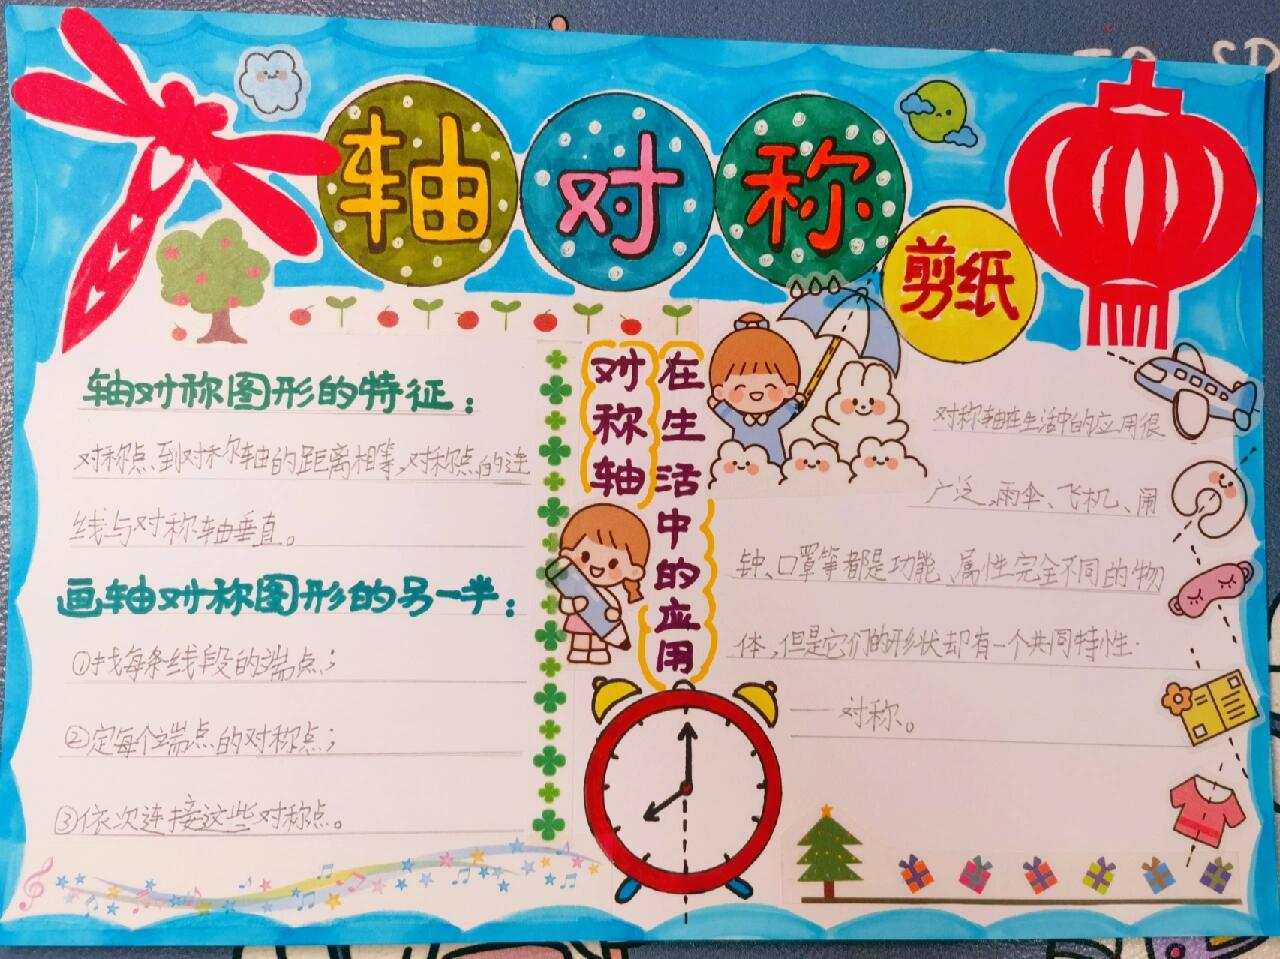 轴对称
剪纸
轴对称图形的特征：
对称点到对称轴的距离相等，对称点的连
线与对称轴垂直。
画轴对称图形的另一半：
①找每条线段的端点；
②定每个端点的对称点；
③依次连接这些对称点。
在生活中的应用
对称轴
对称轴在生活中的应用很
广泛，雨伞、飞机、闹
钟、口罩等都是功能、属性完全不同的物
体，但是它们的形状却有一个共同特性：
——对称。